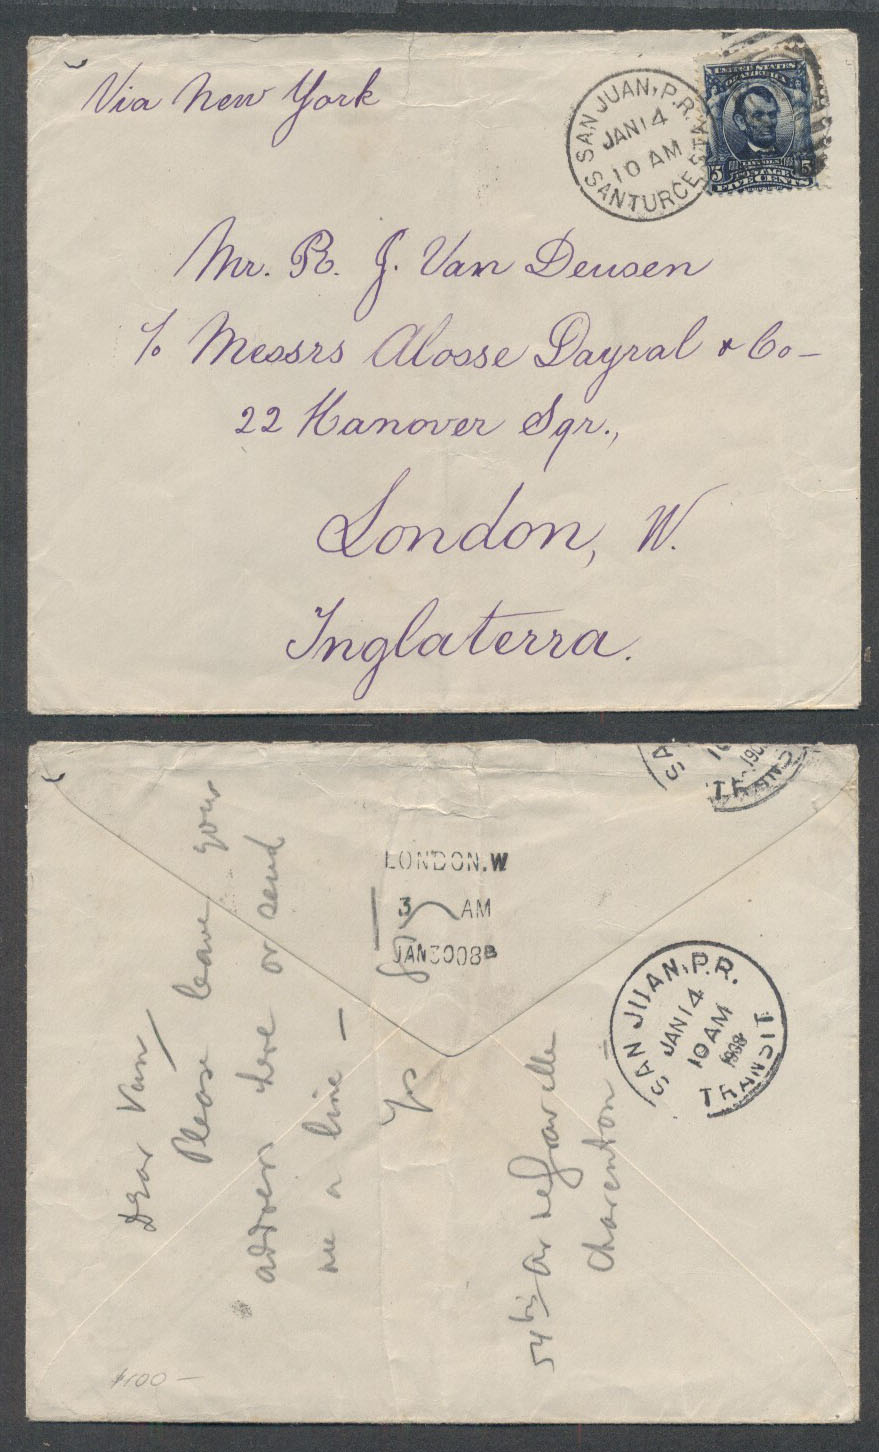 Via New York
SAN JUAN, P.R.
JAN 14
10 AM
SANTURCE STA.
UNITED STATES
OF AMERICA
POSTAGE
5 5
FIVE CENTS
Mr. R. J. Van Deusen
c/o Messrs Alosse Dayral & Co—
22 Hanover Sqr.,
London, W.
Inglaterra.
LONDON.W
3 AM
JAN 30 08 B
SAN JUAN, P.R.
JAN 14
10 AM
1908
TRANSIT
Dear Van
Please leave your
address here or send
me a line —
Yrs
54 bis Av de Gravelle
Charenton —
$100 —